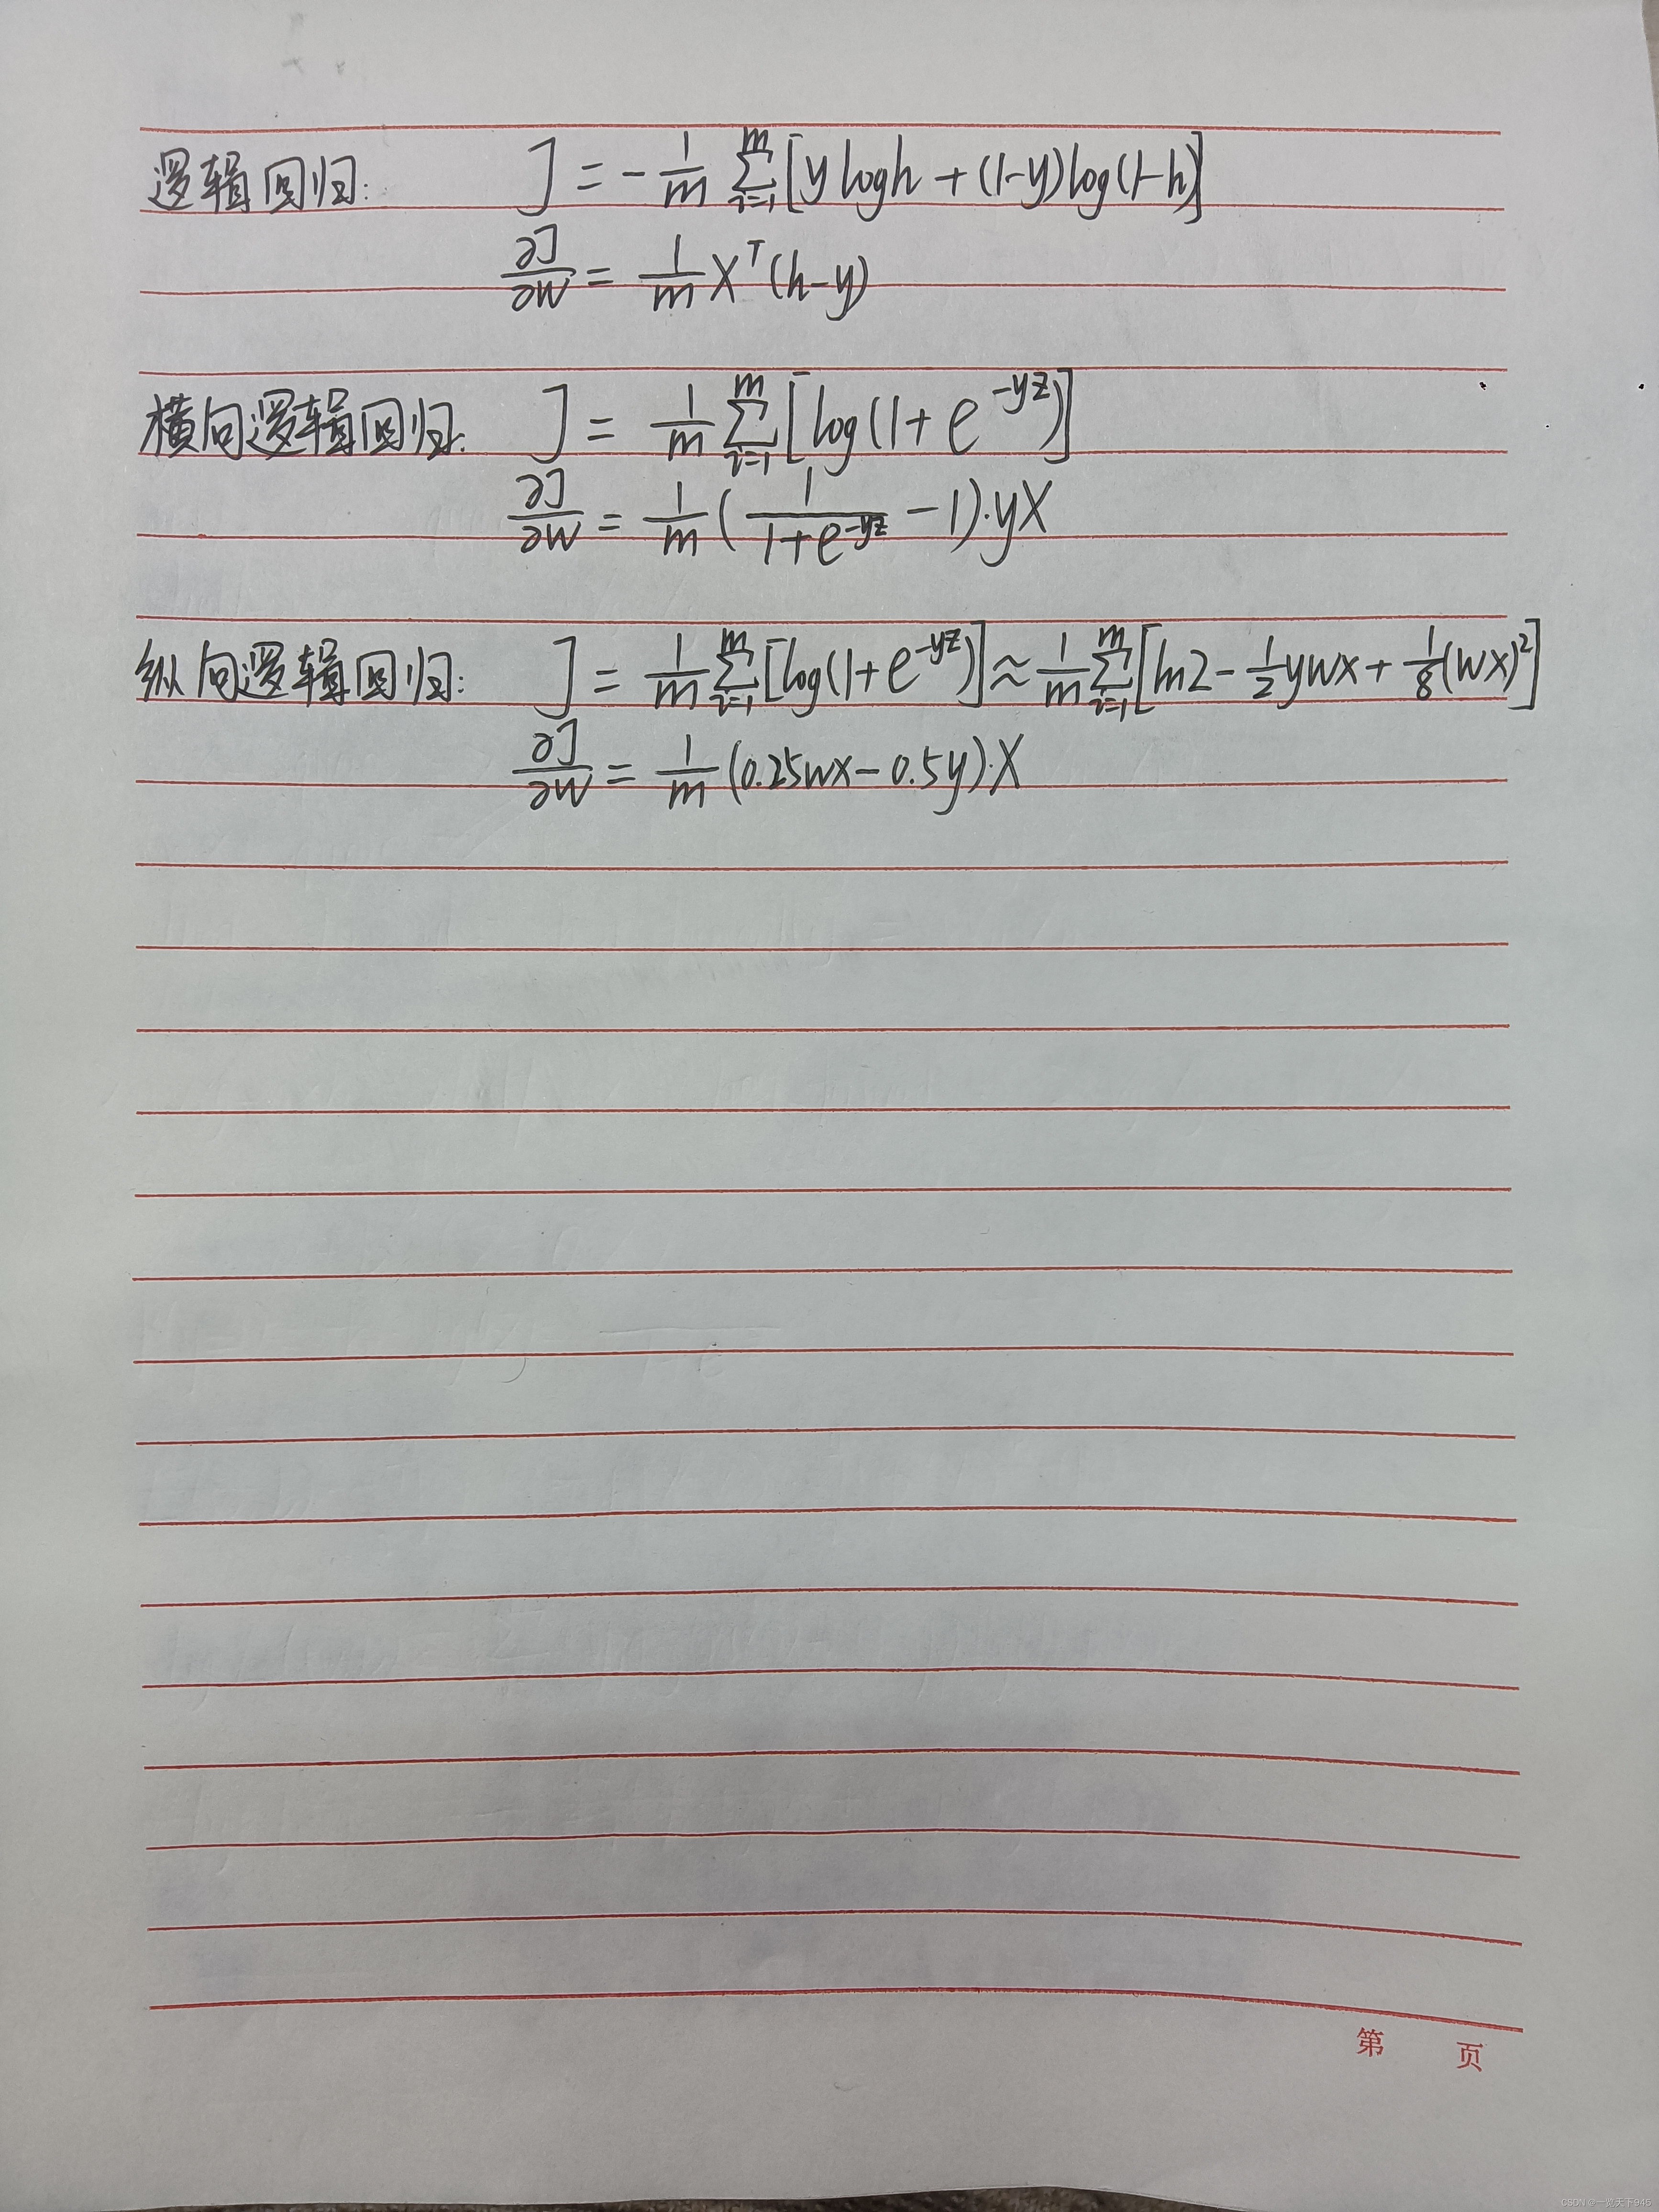 逻辑回归: J = -\frac{1}{m} \sum_{i=1}^{m} [y log h + (1-y) log(1-h)]
\frac{∂J}{∂W} = \frac{1}{m} X^T (h-y)
横向逻辑回归: J = \frac{1}{m} \sum_{i=1}^{m} [log(1+e^{-yz})]
\frac{∂J}{∂W} = \frac{1}{m} (\frac{1}{1+e^{-yz}} - 1)·yX
纵向逻辑回归: J = \frac{1}{m} \sum_{i=1}^{m} [log(1+e^{-yz})] ≈ \frac{1}{m} \sum_{i=1}^{m} [ln2 - \frac{1}{2}ywx + \frac{1}{8}(wx)^2]
\frac{∂J}{∂W} = \frac{1}{m} (0.25wx - 0.5y)·X
第 页
CSDN @一览天下945